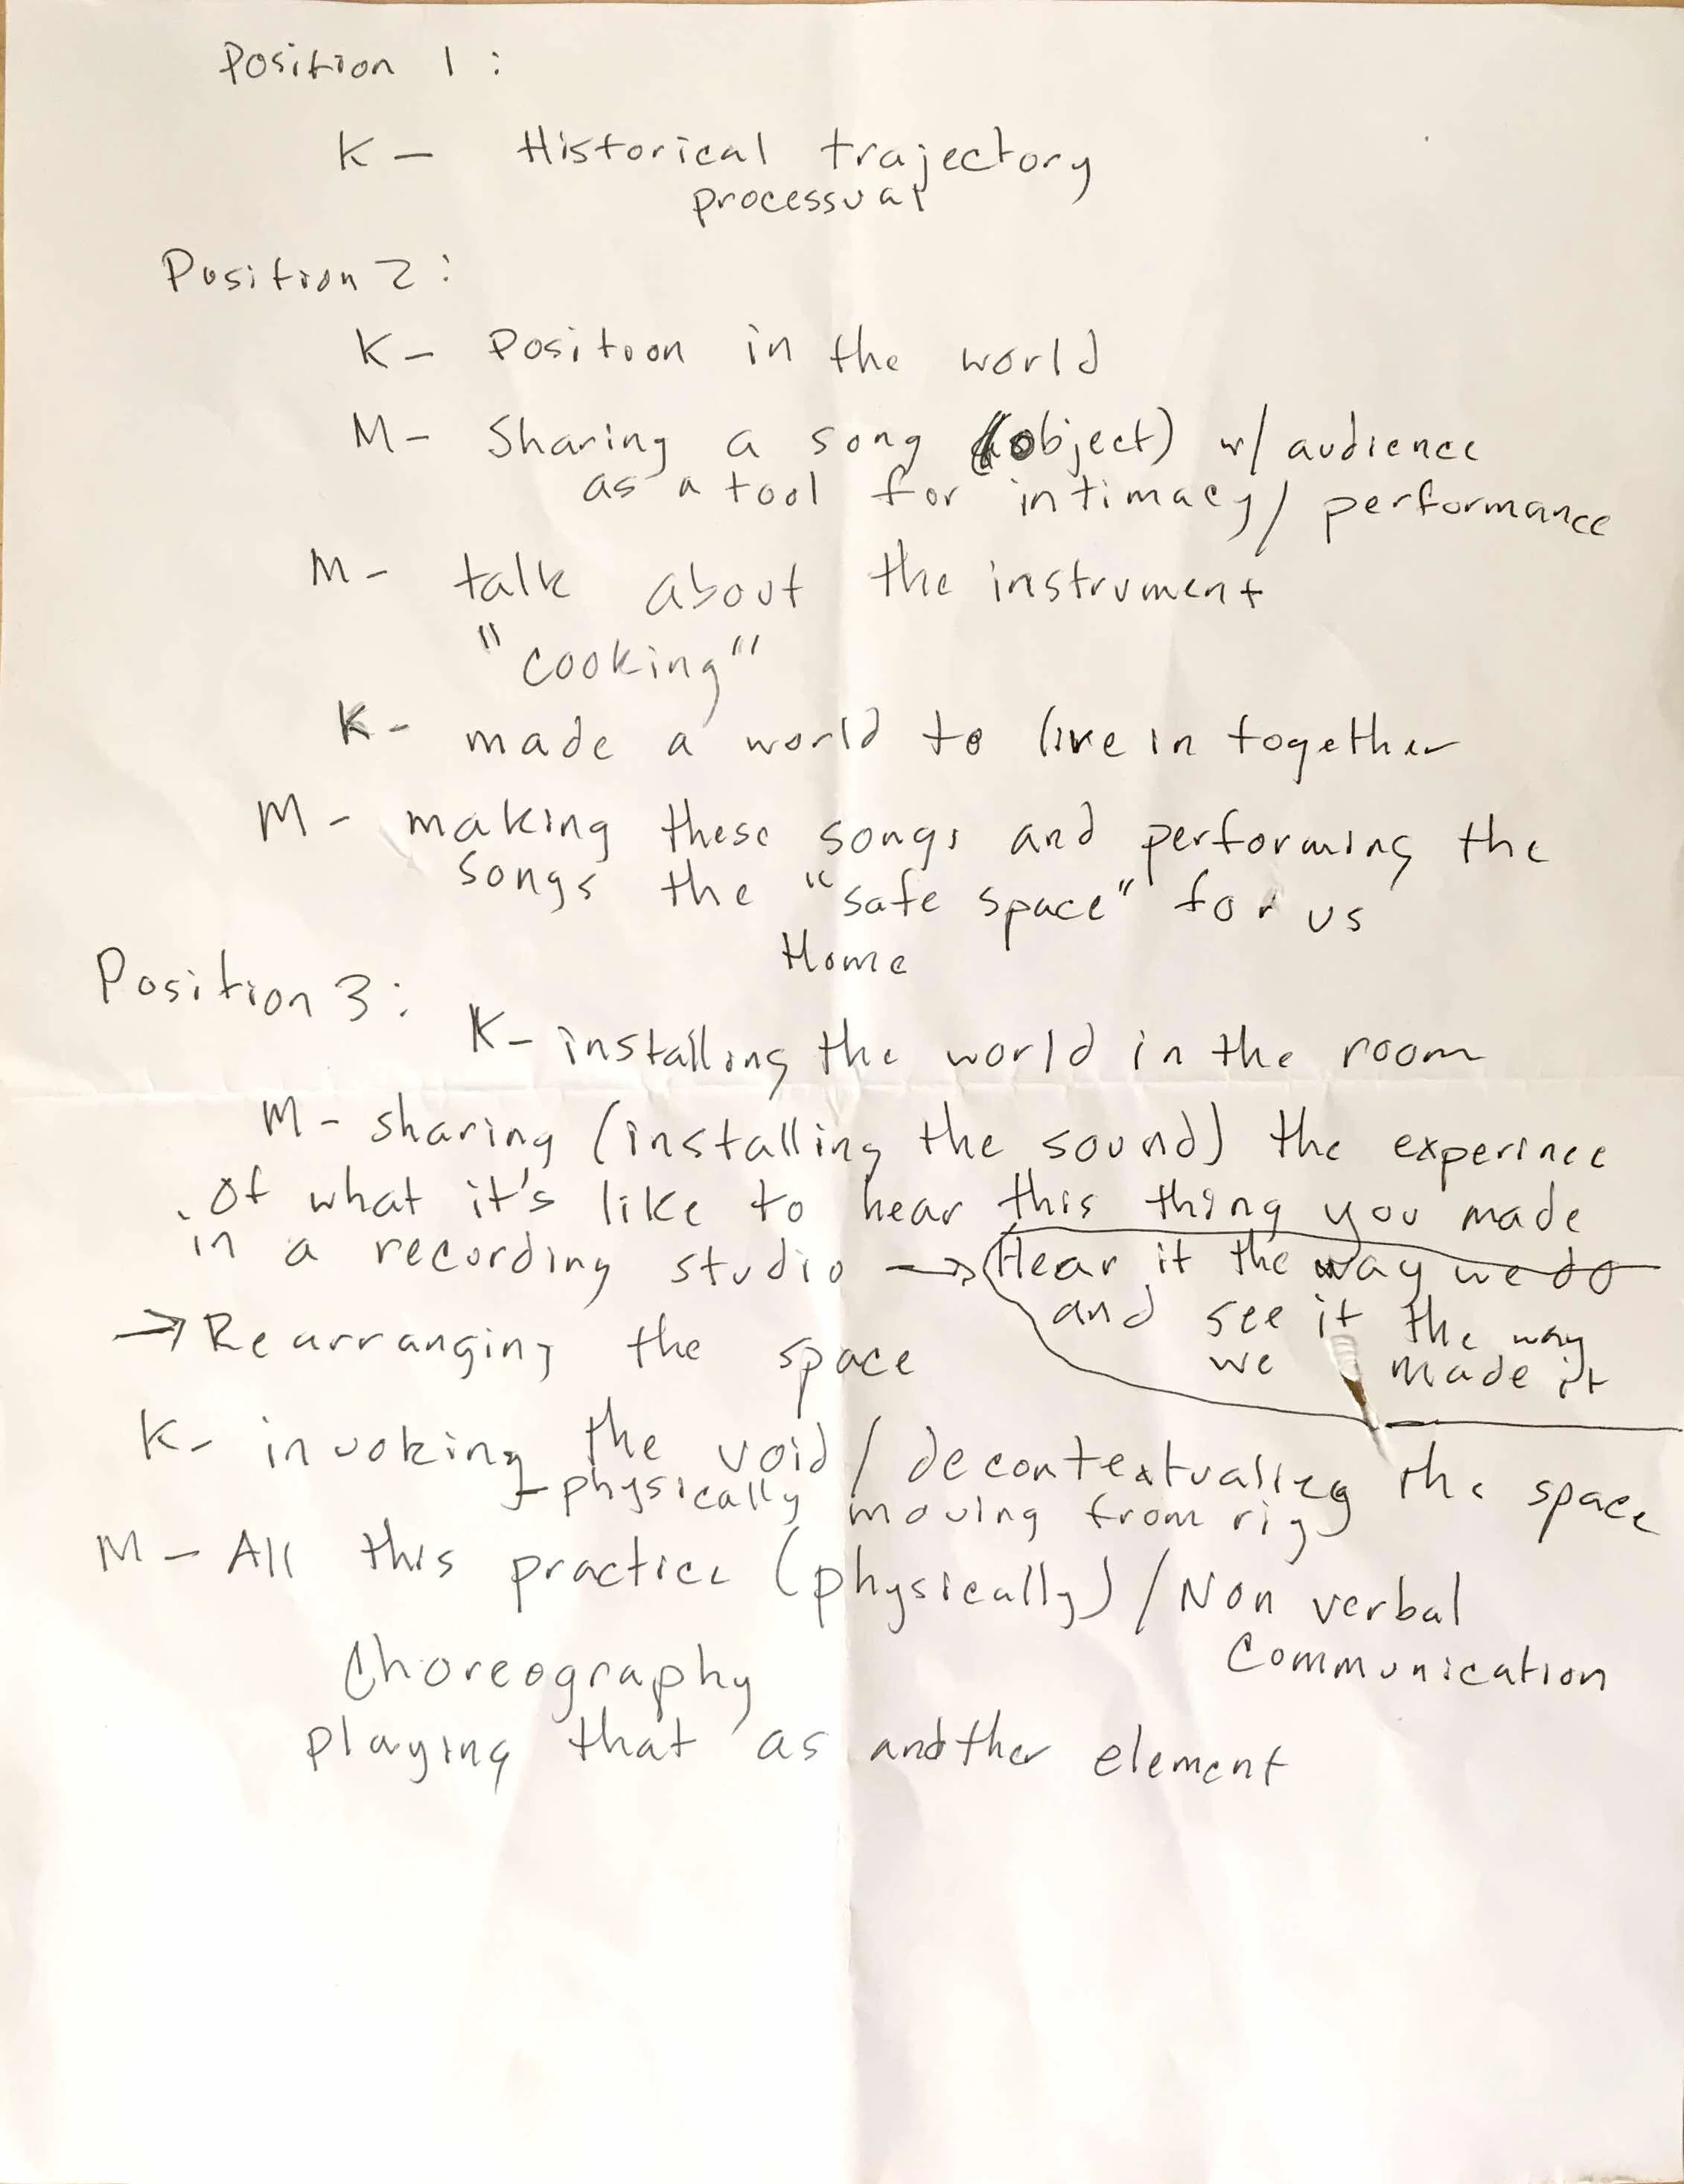 Position 1:
K- Historical trajectory
processual
Position 2:
K- Position in the world
M- Sharing a song (object) w/ audience
as a tool for intimacy/performance
M- talk about the instrument
"cooking"
K- made a world to live in together
M- making these songs and performing the
songs the "safe space" for us
Home
Position 3:
K- installing the world in the room
M- sharing (installing the sound) the experince
of what it's like to hear this thing you made
in a recording studio → Hear it the way we do
and see it the way
we made it
→ Rearranging the space
K- invoking the void/decontextualizg the space
physically moving from rig
M- All this practice (physically)/Non verbal
Communication
Choreography
playing that as another element